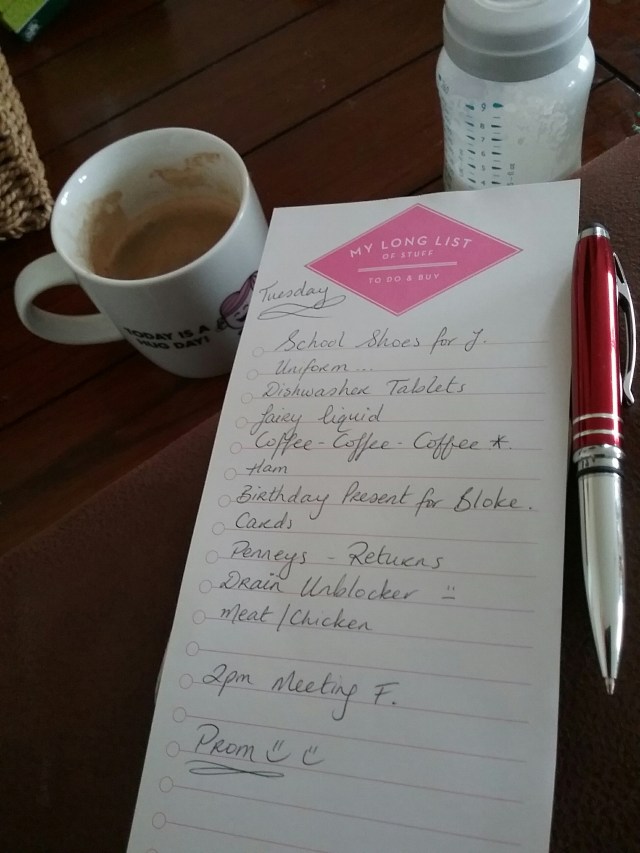 MY LONG LIST
OF STUFF
TO DO & BUY
Tuesday
School Shoes for J.
Uniform ...
Dishwasher Tablets
fairy liquid
Coffee - Coffee - Coffee *.
Ham
Birthday Present for Bloke.
Cards
Penneys - Returns
Drain Unblocker
Meat / Chicken
2pm Meeting F.
Prom
TODAY IS A
HUG DAY!
9
8
7
6
5
4